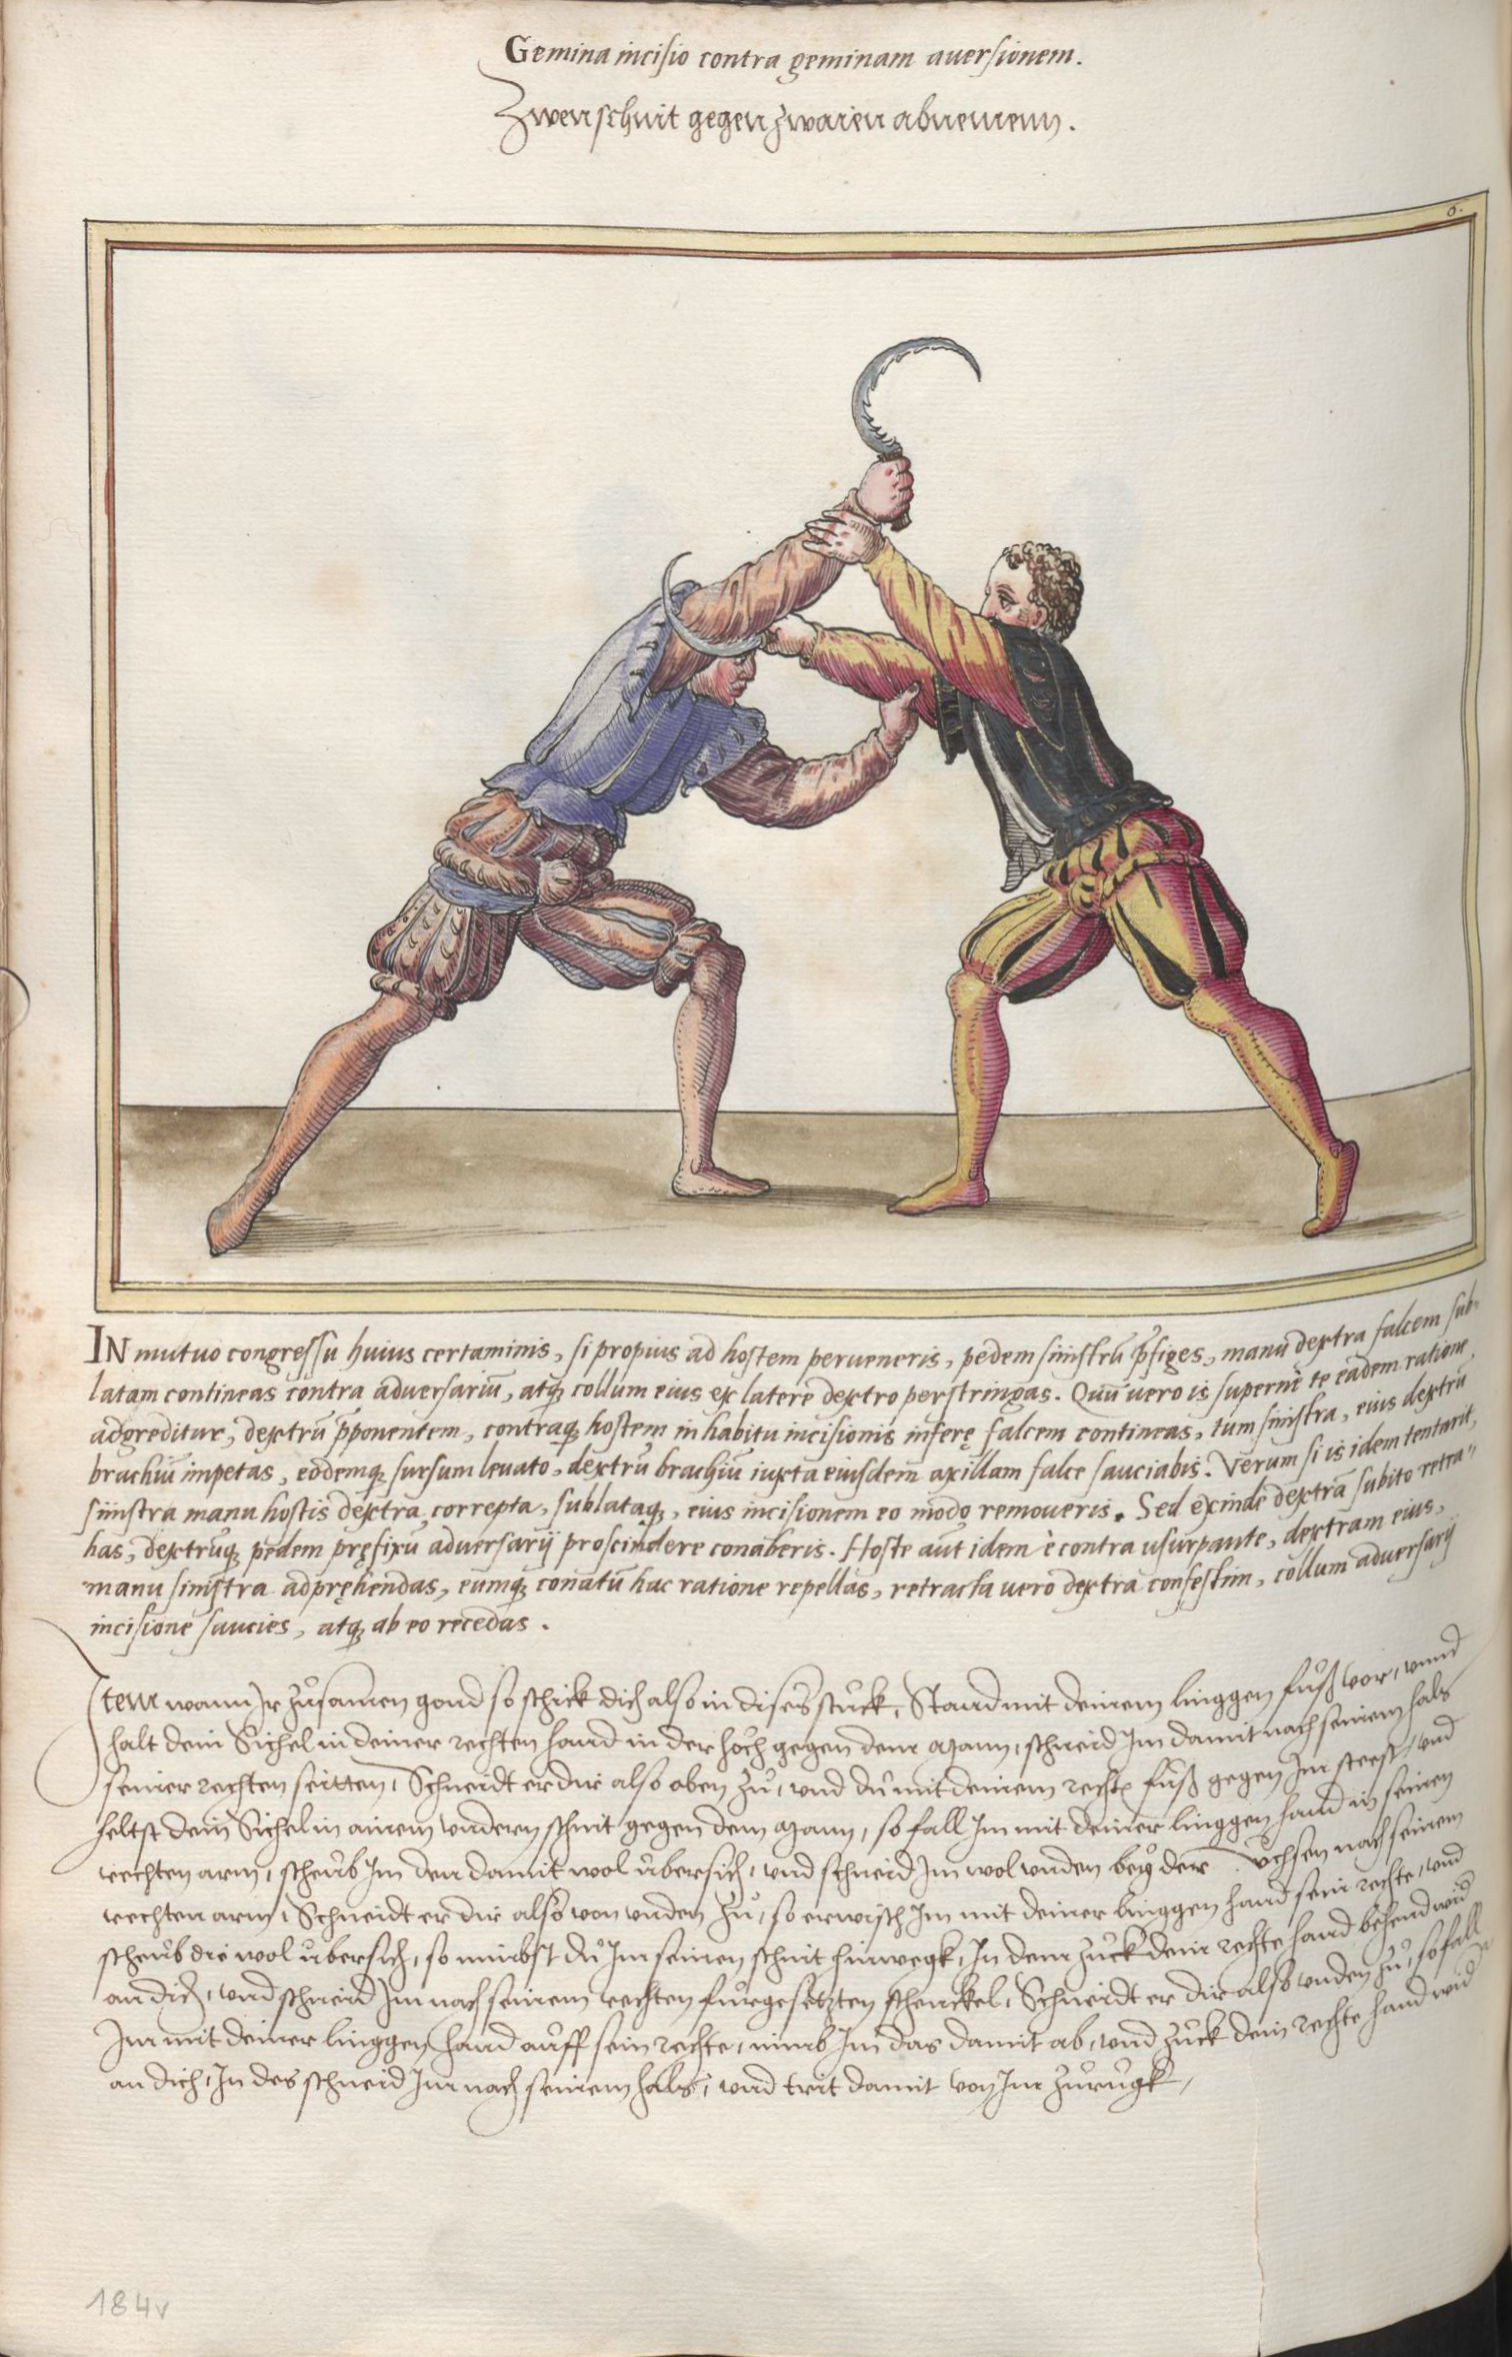 Gemina incisio contra geminam auersionem.
Zwen schnit gegen zwaien abnemenn.
6.
IN mutuo congressu huius certaminis, si propius ad hostem perueneris, pedem sinistrū p̄figes, manu dextra falcem sub-
latam contineas contra aduersariū, atq; collum eius ex latere dextro perstringas. Quū vero is supernè te eadem ratione
adgreditur, dextrū p̄ponentem, contraq; hostem in habitu incisionis inferę falcem contineas, tum sinistra, eius dextrū
brachiū impetas, eodemq; sursum leuato, dextrū brachiū iuxta eiusdem axillam falce sauciabis. Verum si is idem tentarit,
sinistra manu hostis dextra correpta, sublataq;, eius incisionem eo modo remoueris. Sed exinde dextrā subito retra-
has, dextrūq; pedem pręfixū aduersarij proscindere conaberis. Hoste aūt idem è contra usurpante, dextram eius,
manu sinistra adpręhendas, eumq; conatū hac ratione repellas, retracta vero dextra confestim, collum aduersarij
incisione saucies, atq; ab eo recedas.
Item wann Ir zůsamen gond so schick dich also in dises stuck, Stand mit deinem linggen fůß vor, vnnd
halt dein Sichel in deiner rechten hand in der höch gegen dem Mann, schneid Im damit nach seinem hals
seiner rechten seitten, Schneidt er dir also oben zů, vnd dů mit deinem recht fůß gegen Im steest, vnd
heltst dein Sichel in ainem vnderen schnit gegen dem Mann, so fall Im mit deiner linggen hand in seinen
rechten arm, scheub Im den damit wol übersich, vnd schneid Im wol vnden bey der vchsen nach seinem
rechten arm, Schneidt er dir also von vnden zů, so erwisch Im mit deiner linggen hand sein rechte, vnd
scheub die wol übersich, so nimbst dů Im seinen schnit hinwegk, In dem zuck dein rechte hand behend wid
an dich, vnd schneid Im nach seinem rechten fürgesetzten schenckel, Schneidt er dir also vnden zů, so fall
Im mit deiner linggen hand auff sein rechte, nimb Im das damit ab, vnd zuck dein rechte hand wid
an dich, In des schneid Im nach seinem hals, vnd trit damit von Im zůrugk,
184v